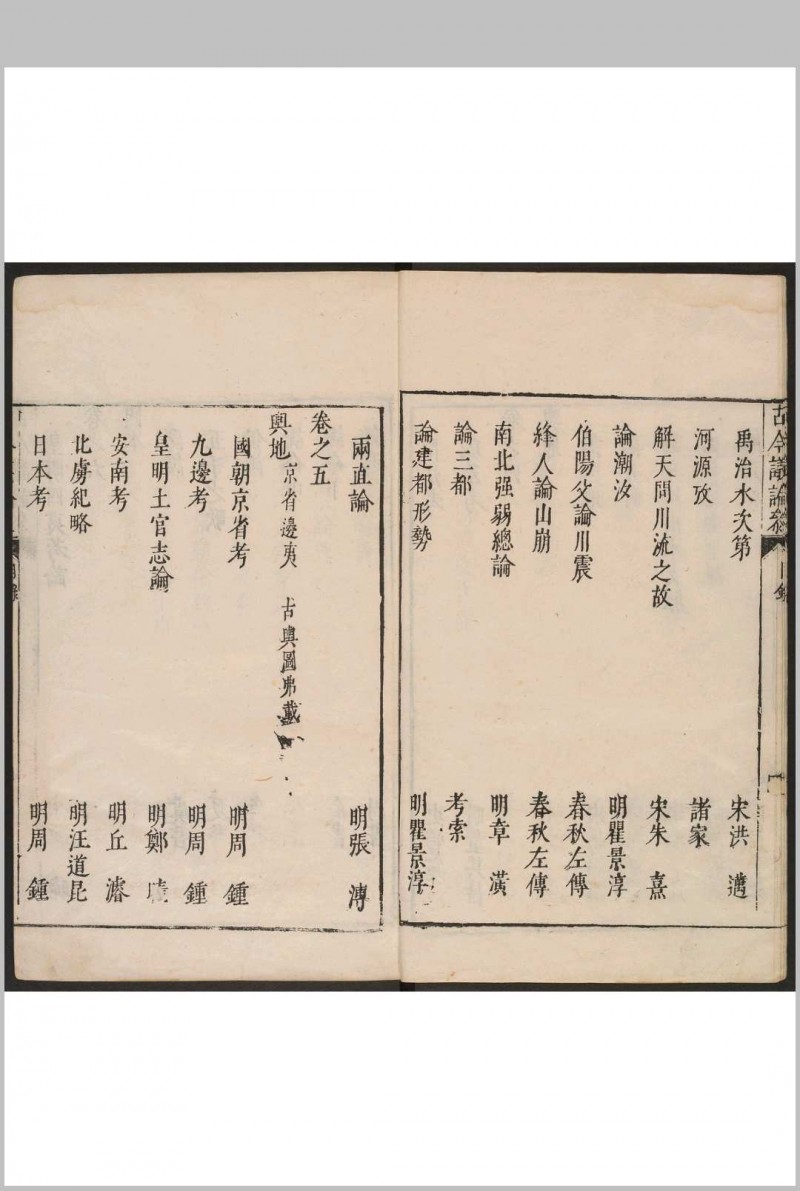 古今議論參
目錄
禹治水次第 宋洪邁
河源攷 諸家
解天問川流之故 宋朱熹
論潮汐 明瞿景淳
伯陽父論川震 春秋左傳
絳人論山崩 春秋左傳
南北强弱總論 明章潢
論三都 考索
論建都形勢 明瞿景淳
兩直論 明張溥
卷之五
輿地 京省邊夷 古輿圖弗載
國朝京省考 明周鍾
九邊考 明周鍾
皇明土官志論 明鄭
安南考 明丘濬
北虜紀略 明汪道昆
日本考 明周鍾